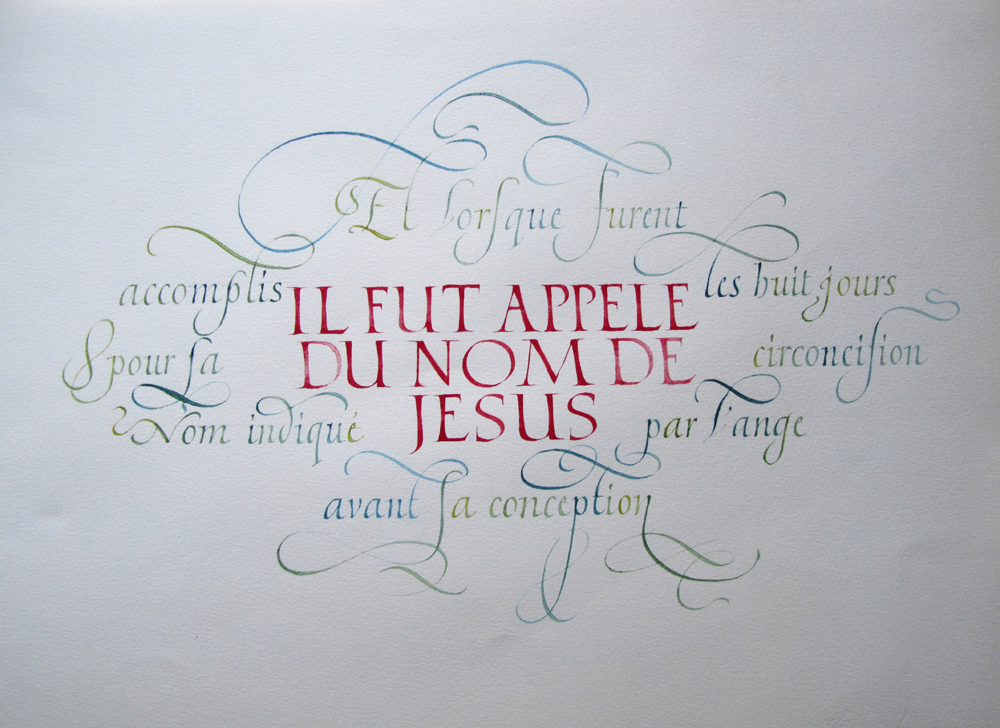 Et lorsque furent
accomplis les huit jours
pour la circoncision
IL FUT APPELE
DU NOM DE
JESUS
Nom indiqué par l'ange
avant la conception